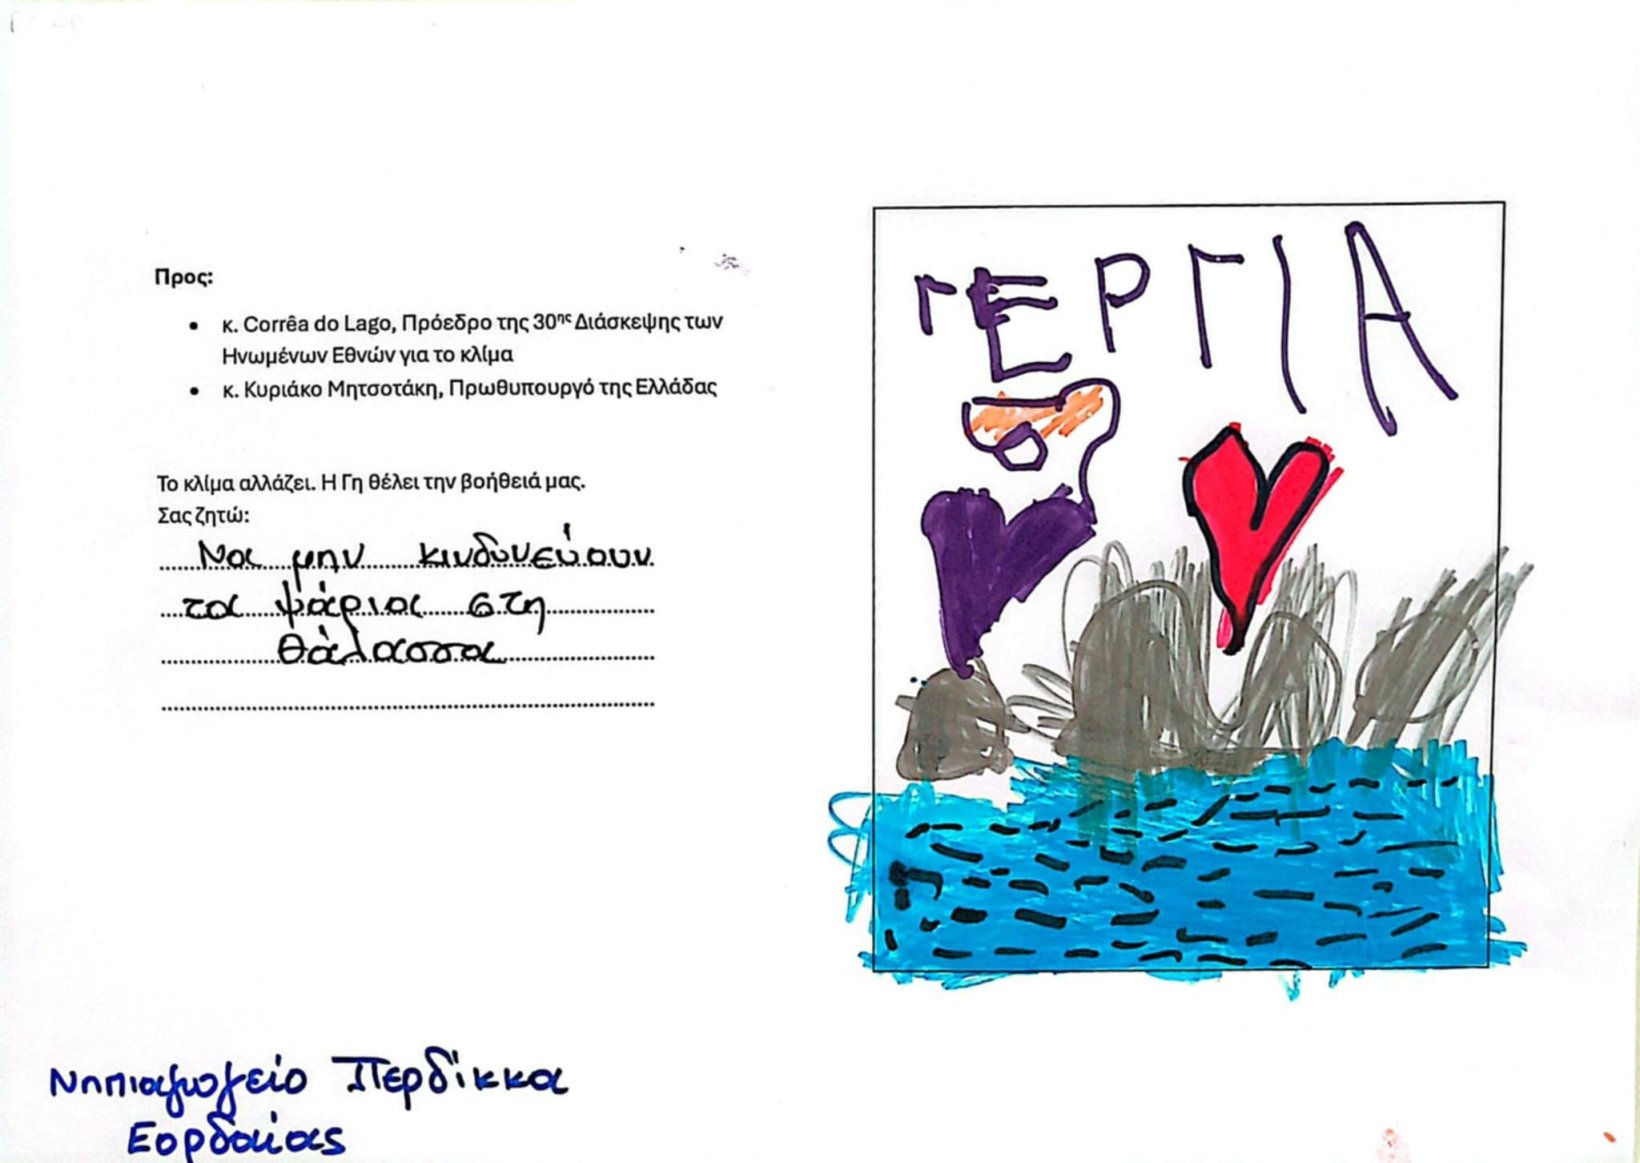 Προς:
• κ. Corrêa do Lago, Πρόεδρο της 30ης Διάσκεψης των
Ηνωμένων Εθνών για το κλίμα
• κ. Κυριάκο Μητσοτάκη, Πρωθυπουργό της Ελλάδας
Το κλίμα αλλάζει. Η Γη θέλει την βοήθειά μας.
Σας ζητώ:
Να μην κινδυνεύουν
τα ψάρια στη
θάλασσα
Νηπιαγωγείο Περδίκκα
Εορδαίας
ΓΕΡΓΙΑ